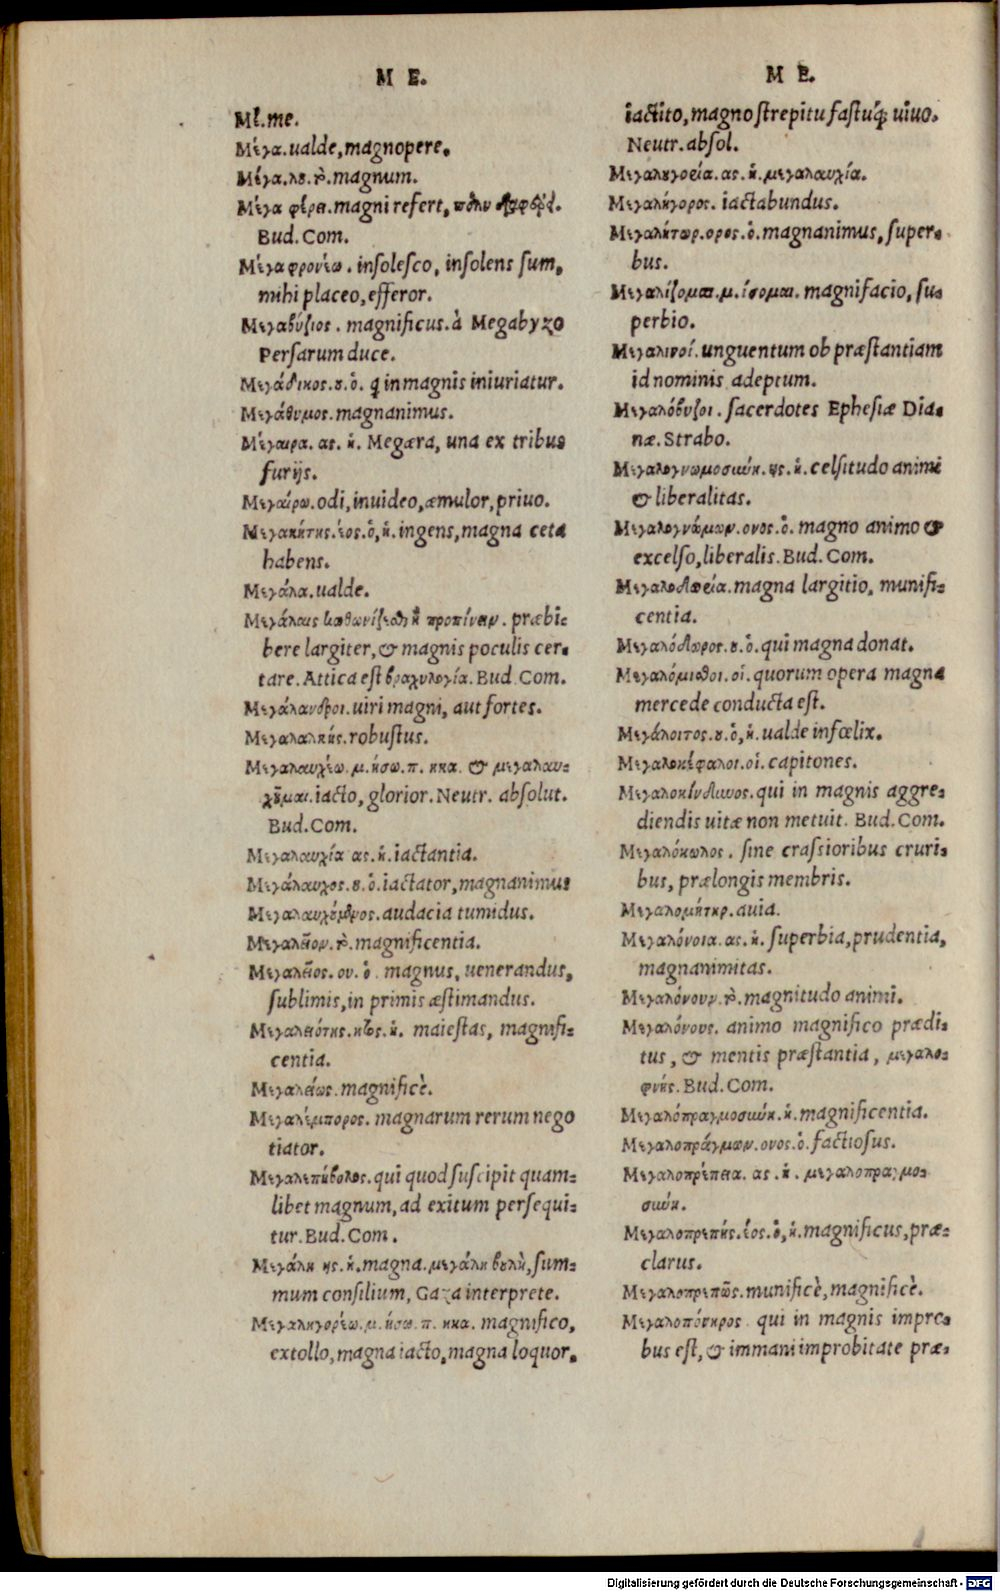 M E.
Μὲ. me.
Μέγα. ualde, magnopere.
Μέγα. λου. τὸ. magnum.
Μέγα φέρει. magni refert, πολὺ διαφέρει.
Bud. Com.
Μέγα φρονέω. insolesco, insolens sum,
mihi placeo, efferor.
Μεγαβύζιος. magnificus. à Megabyzo
Persarum duce.
Μεγάδικος. ου. ὁ. q in magnis iniuriatur.
Μεγάθυμος. magnanimus.
Μέγαιρα. ας. ἡ. Megæra, una ex tribus
furijs.
Μεγαίρω. odi, inuideo, æmulor, priuo.
Μεγακήτης. έος. ὁ, ἡ. ingens, magna ceta
habens.
Μεγάλα. ualde.
Μεγάλαις κωθωνίζεσθαι καὶ προπίνειν. præbi⸗
bere largiter, & magnis poculis cer⸗
tare. Attica est βραχυλογία. Bud. Com.
Μεγάλανδροι. uiri magni, aut fortes.
Μεγαλαλκής. robustus.
Μεγαλαυχέω. μ. ήσω. π. ηκα. & μεγαλαυ⸗
χοῦμαι. iacto, glorior. Neutr. absolut.
Bud. Com.
Μεγαλαυχία ας. ἡ. iactantia.
Μεγάλαυχος. ου. ὁ. iactator, magnanimus
Μεγαλαυχούμενος. audacia tumidus.
Μεγαλεῖον. τὸ. magnificentia.
Μεγαλεῖος. ου. ὁ. magnus, uenerandus,
sublimis, in primis æstimandus.
Μεγαλειότης. ητος. ἡ. maiestas, magnifi⸗
centia.
Μεγαλείως. magnificè.
Μεγαλέμπορος. magnarum rerum nego
tiator.
Μεγαλεπήβολος. qui quod suscipit quam⸗
libet magnum, ad exitum persequi⸗
tur. Bud. Com.
Μεγάλη ης. ἡ. magna. μεγάλη βουλὴ, sum⸗
mum consilium, Gaza interprete.
Μεγαληγορέω. μ. ήσω. π. ηκα. magnifico,
extollo, magna iacto, magna loquor,
M E.
iactito, magno strepitu fastuq́; uiuo.
Neutr. absol.
Μεγαληγορία. ας. ἡ. μεγαλαυχία.
Μεγαλήγορος. iactabundus.
Μεγαλήτωρ. ορος. ὁ. magnanimus, super⸗
bus.
Μεγαλίζομαι. μ. ίσομαι. magnifacio, su⸗
perbio.
Μεγαλινοί. unguentum ob præstantiam
id nominis adeptum.
Μεγαλόβυζοι. sacerdotes Ephesiæ Dia⸗
næ. Strabo.
Μεγαλογνωμοσύνη. ης. ἡ. celsitudo animi
& liberalitas.
Μεγαλογνώμων. ονος. ὁ. magno animo &
excelso, liberalis. Bud. Com.
Μεγαλοδωρεία. magna largitio, munifi⸗
centia.
Μεγαλόδωρος. ου. ὁ. qui magna donat.
Μεγαλόμισθοι. οἱ. quorum opera magna
mercede conducta est.
Μεγάλοιτος. ου. ὁ, ἡ. ualde infœlix.
Μεγαλοκέφαλοι. οἱ. capitones.
Μεγαλοκίνδυνος. qui in magnis aggre⸗
diendis uitæ non metuit. Bud. Com.
Μεγαλόκωλος. sine crassioribus cruri⸗
bus, prælongis membris.
Μεγαλομήτηρ. auia.
Μεγαλόνοια. ας. ἡ. superbia, prudentia,
magnanimitas.
Μεγαλόνουν. τὸ. magnitudo animi.
Μεγαλόνους. animo magnifico prædi⸗
tus, & mentis præstantia, μεγαλο⸗
φυής. Bud. Com.
Μεγαλοπραγμοσύνη. ἡ. magnificentia.
Μεγαλοπράγμων. ονος. ὁ. factiosus.
Μεγαλοπρέπεια. ας. ἡ. μεγαλοπραγμο⸗
σύνη.
Μεγαλοπρεπής. έος. ὁ, ἡ. magnificus, præ⸗
clarus.
Μεγαλοπρεπῶς. munificè, magnificè.
Μεγαλοπόνηρος. qui in magnis impro⸗
bus est, & immani improbitate præ⸗
Digitalisierung gefördert durch die Deutsche Forschungsgemeinschaft - DFG